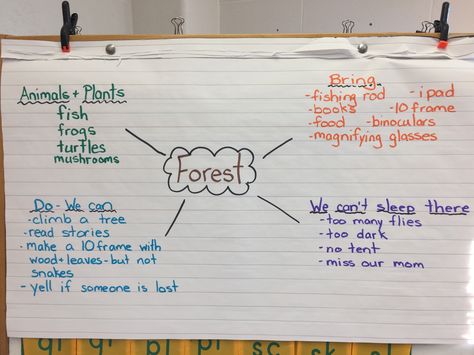 Animals + Plants
fish
frogs
turtles
mushrooms
Bring
-fishing rod -ipad
-books -10 frame
-food -binoculars
-magnifying glasses
Forest
Do - We can
-climb a tree
-read stories
-make a 10 frame with
wood + leaves - but not
snakes
-yell if someone is lost
We can't sleep there
-too many flies
-too dark
-no tent
-miss our mom